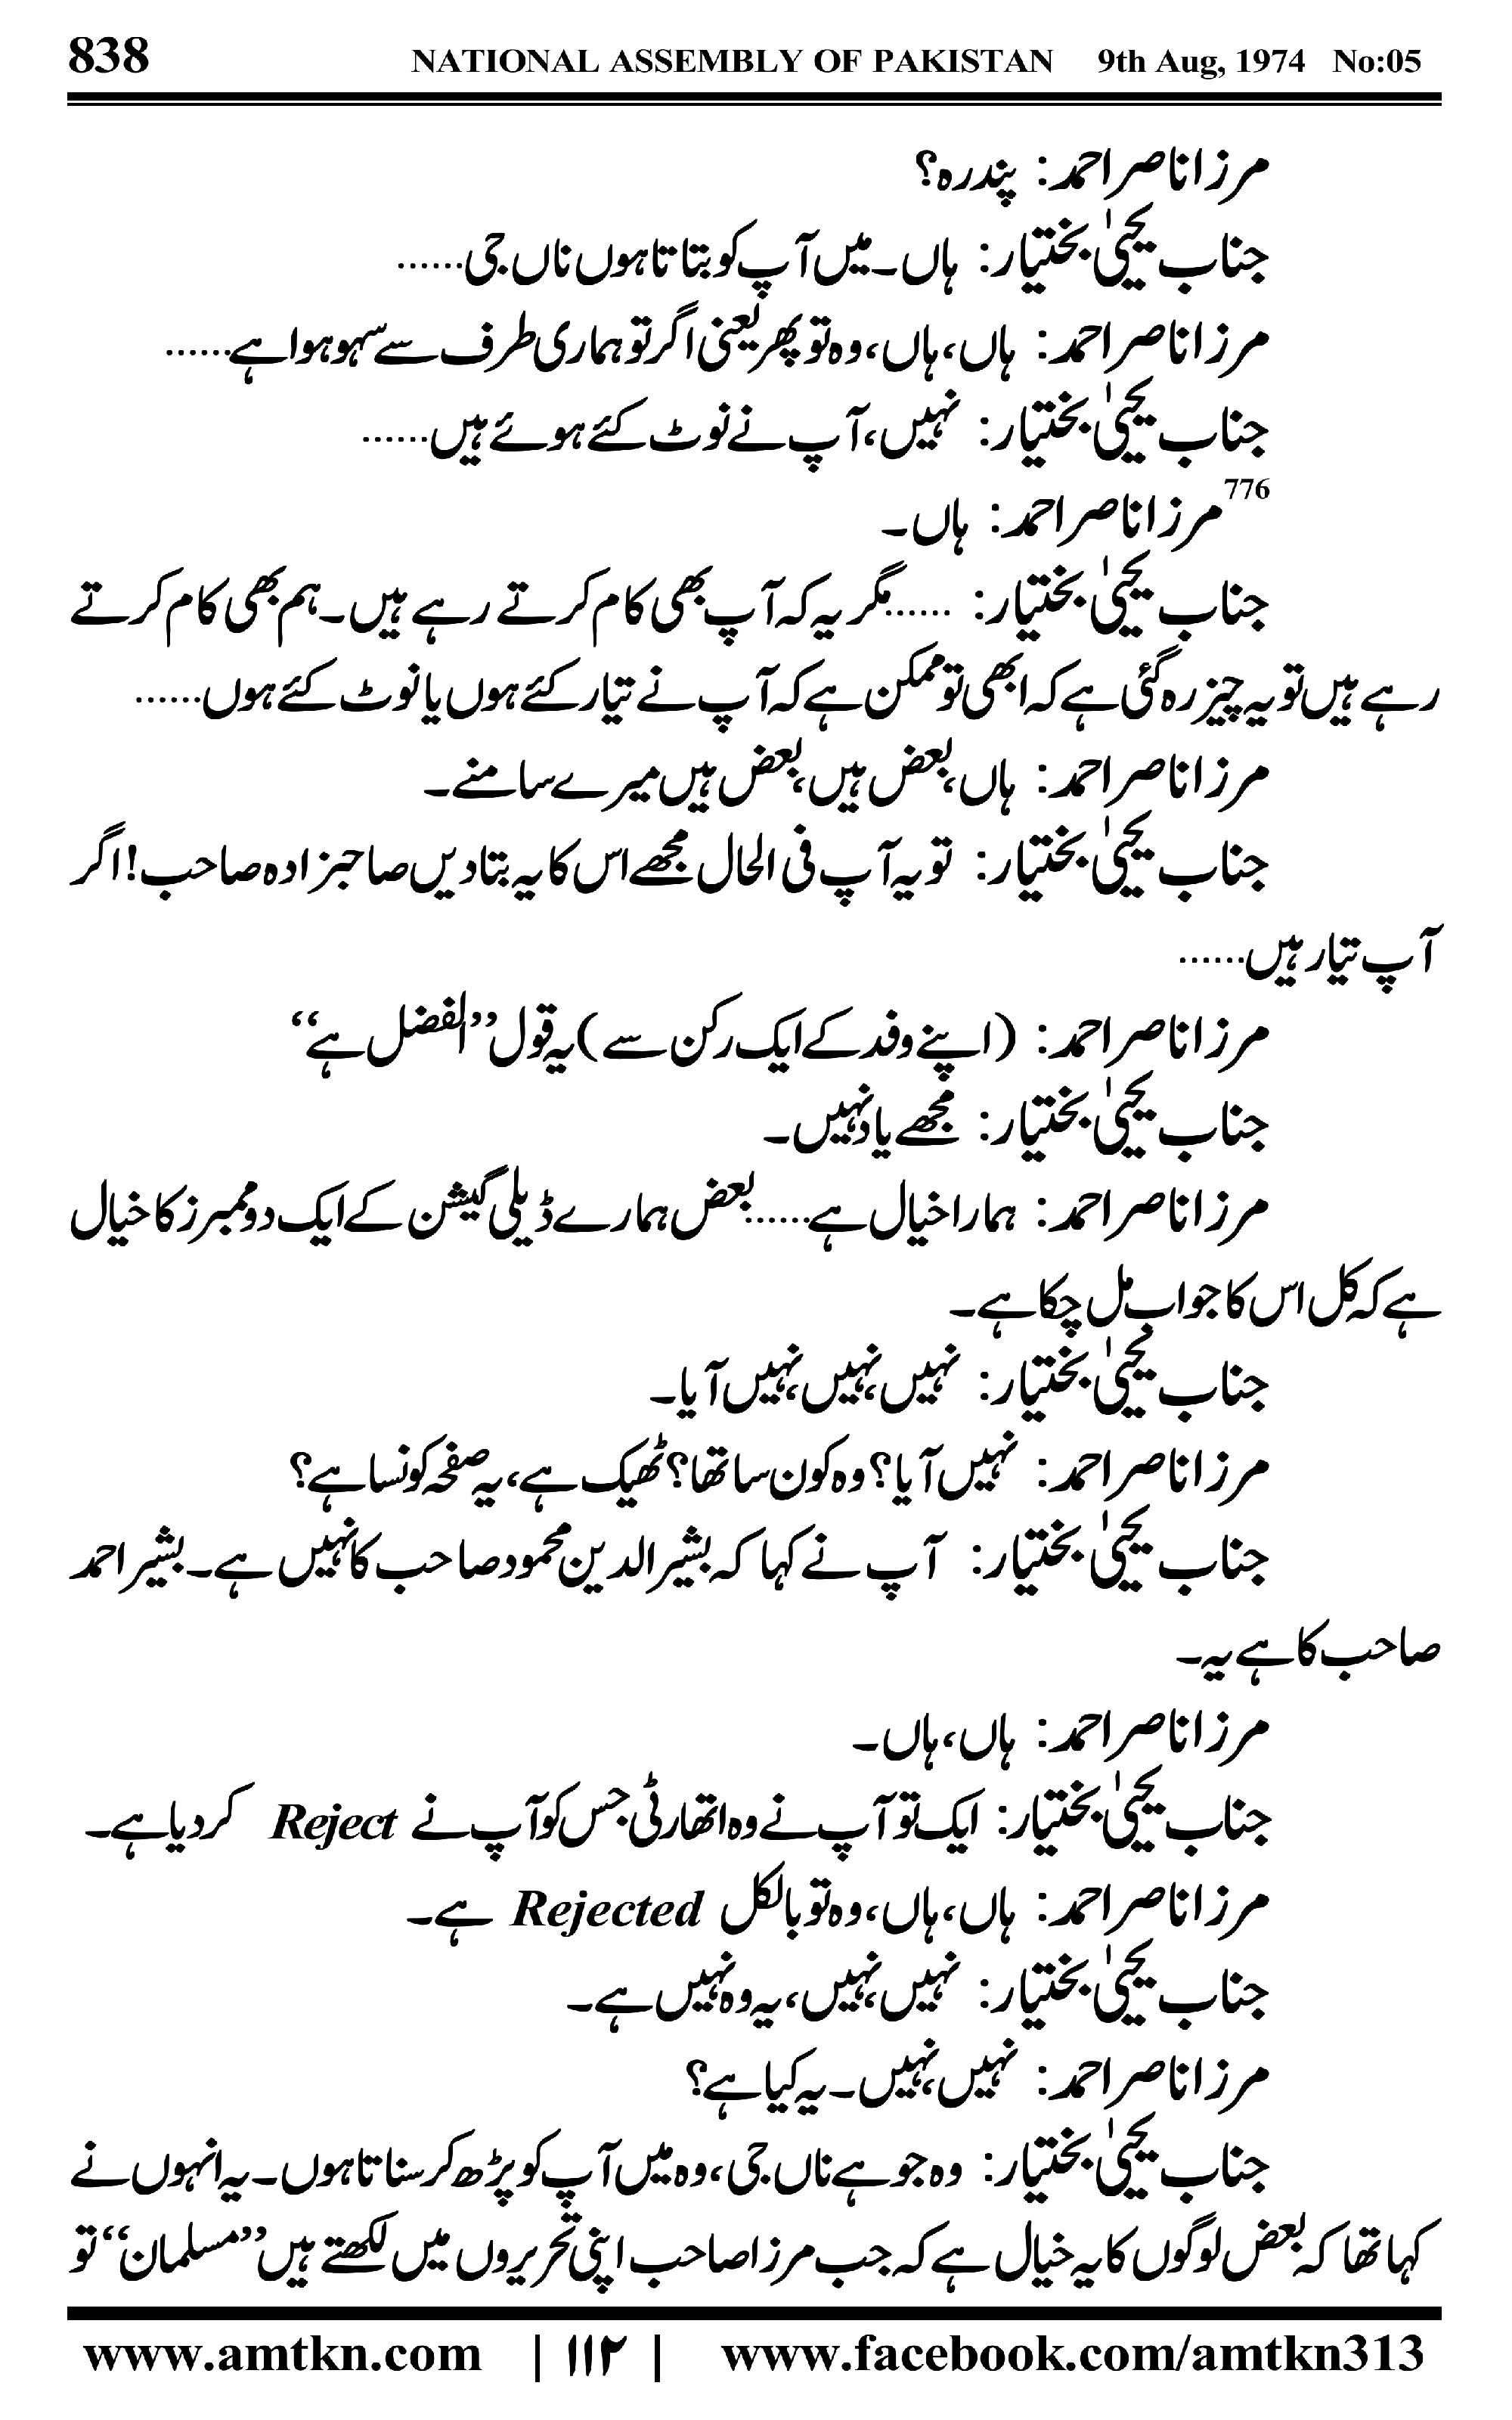 838 NATIONAL ASSEMBLY OF PAKISTAN 9th Aug, 1974 No:05
مرزا ناصر احمد: پندرہ؟
جناب یحییٰ بختیار: ہاں۔ میں آپ کو بتاتا ہوں ناں جی......
مرزا ناصر احمد: ہاں، ہاں، وہ تو پھر یعنی اگر تو ہماری طرف سے سہو ہوا ہے......
جناب یحییٰ بختیار: نہیں، آپ نے نوٹ کئے ہوئے ہیں......
776مرزا ناصر احمد: ہاں۔
جناب یحییٰ بختیار: ......مگر یہ کہ آپ بھی کام کرتے رہے ہیں۔ ہم بھی کام کرتے
رہے ہیں تو یہ چیز رہ گئی ہے کہ ابھی تو ممکن ہے کہ آپ نے تیار کئے ہوں یا نوٹ کئے ہوں......
مرزا ناصر احمد: ہاں، بعض ہیں، بعض ہیں میرے سامنے۔
جناب یحییٰ بختیار: تو یہ آپ فی الحال مجھے اس کا یہ بتادیں صاحبزادہ صاحب! اگر
آپ تیار ہیں......
مرزا ناصر احمد: (اپنے وفد کے ایک رکن سے) یہ قول ’’الفضل ہے‘‘
جناب یحییٰ بختیار: مجھے یاد نہیں۔
مرزا ناصر احمد: ہمارا خیال ہے......بعض ہمارے ڈیلی گیشن کے ایک دو ممبرز کا خیال
ہے کہ کل اس کا جواب مل چکا ہے۔
جناب یحییٰ بختیار: نہیں، نہیں، نہیں آیا۔
مرزا ناصر احمد: نہیں آیا؟ وہ کون سا تھا؟ ٹھیک ہے، یہ صفحہ کونسا ہے؟
جناب یحییٰ بختیار: آپ نے کہا کہ بشیر الدین محمود صاحب کا نہیں ہے۔ بشیر احمد
صاحب کا ہے یہ۔
مرزا ناصر احمد: ہاں، ہاں۔
جناب یحییٰ بختیار: ایک تو آپ نے وہ اتھارٹی جس کو آپ نے Reject کر دیا ہے۔
مرزا ناصر احمد: ہاں، ہاں، وہ تو بالکل Rejected ہے۔
جناب یحییٰ بختیار: نہیں، نہیں، یہ وہ نہیں ہے۔
مرزا ناصر احمد: نہیں، نہیں۔ یہ کیا ہے؟
جناب یحییٰ بختیار: وہ جو ہے ناں جی، وہ میں آپ کو پڑھ کر سناتا ہوں۔ یہ انہوں نے
کہا تھا کہ بعض لوگوں کا یہ خیال ہے کہ جب مرزا صاحب اپنی تحریروں میں لکھتے ہیں ’’مسلمان‘‘ تو
www.amtkn.com | ۱۱۲ | www.facebook.com/amtkn313